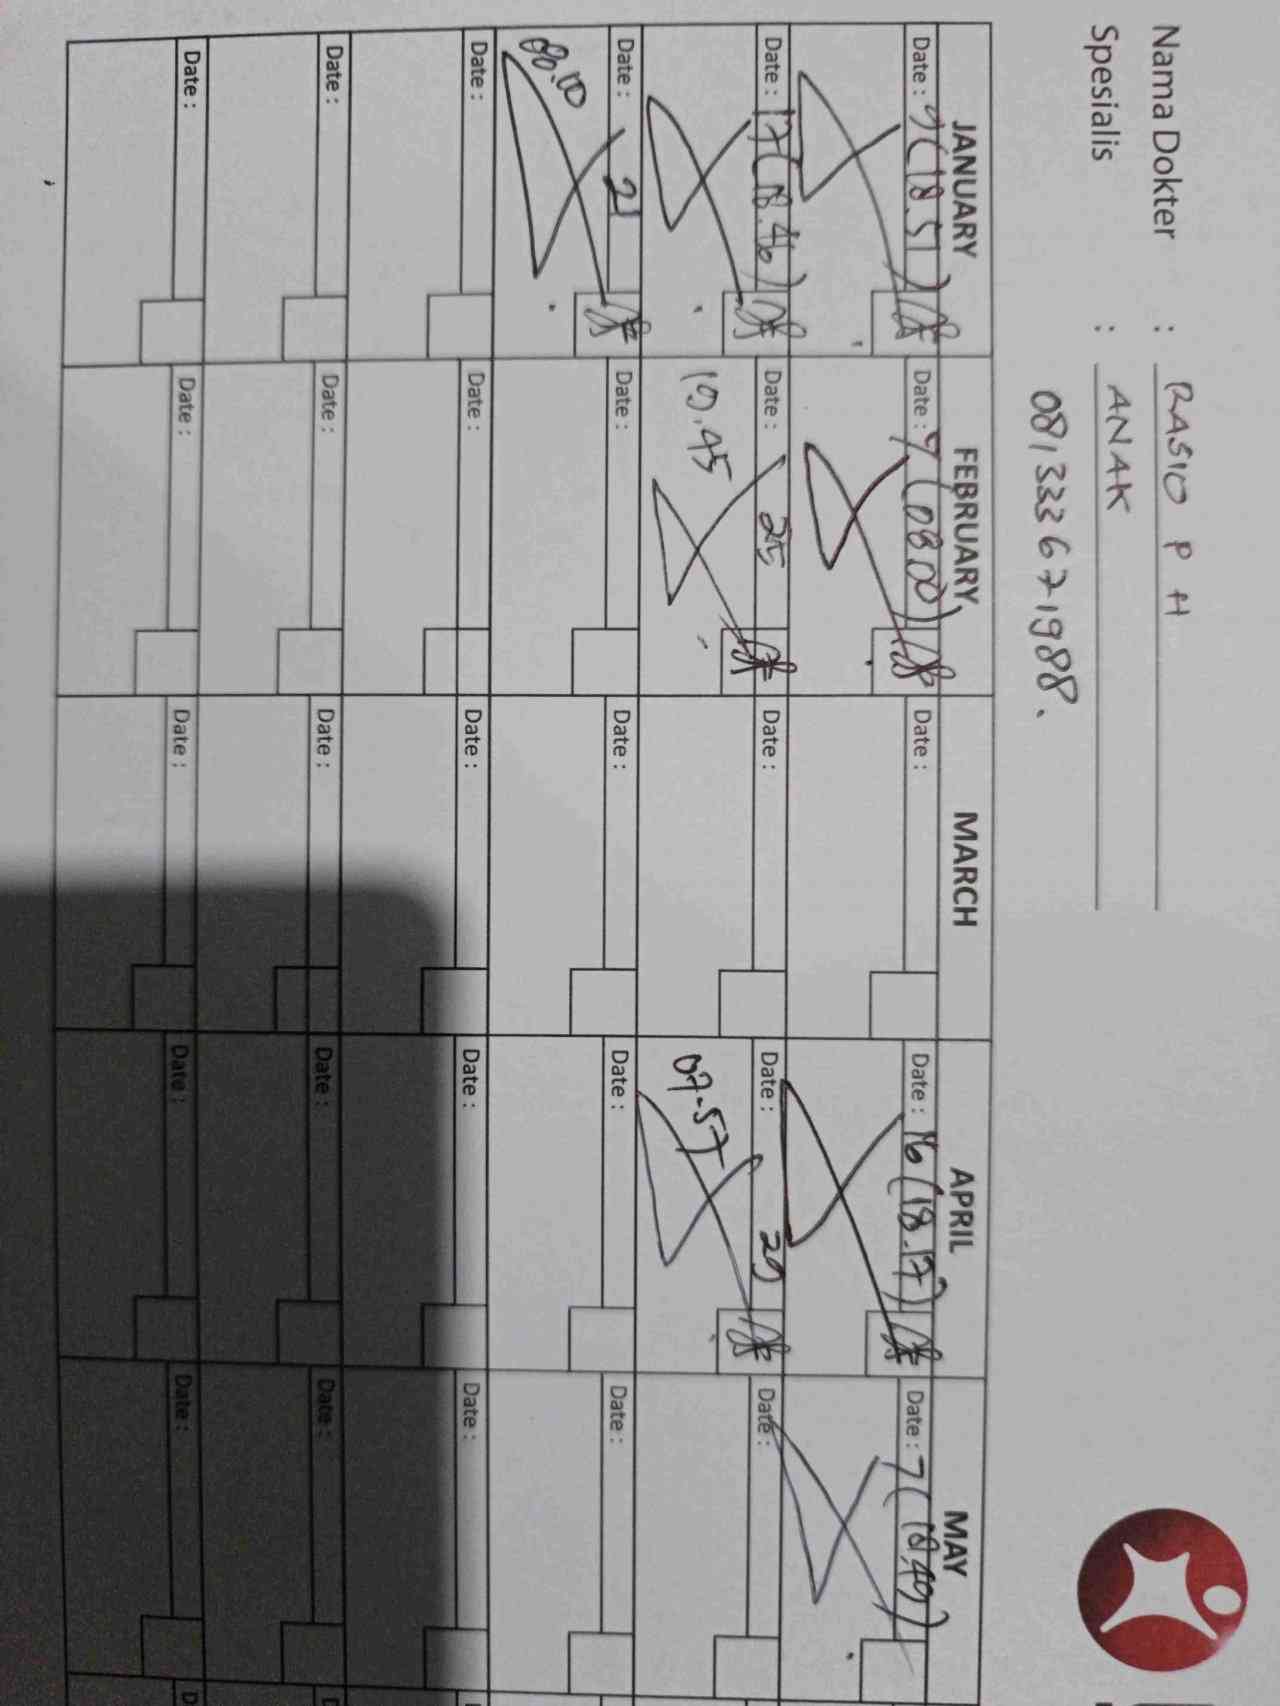 Nama Dokter : RASIO P H
Spesialis : ANAK
081333671988.
JANUARY FEBRUARY MARCH APRIL MAY
Date : 7 (18.51) Date : 7 (08.00) Date : Date : 16 (18.17) Date : 7 (18.40)
Date : 17 (18.46) Date : 25 Date : Date : 20 Date :
19.45 07.57
Date : 21 Date : Date : Date : Date :
08.00
Date : Date : Date : Date : Date :
Date : Date : Date : Date : Date :
Date : Date : Date : Date : Date :